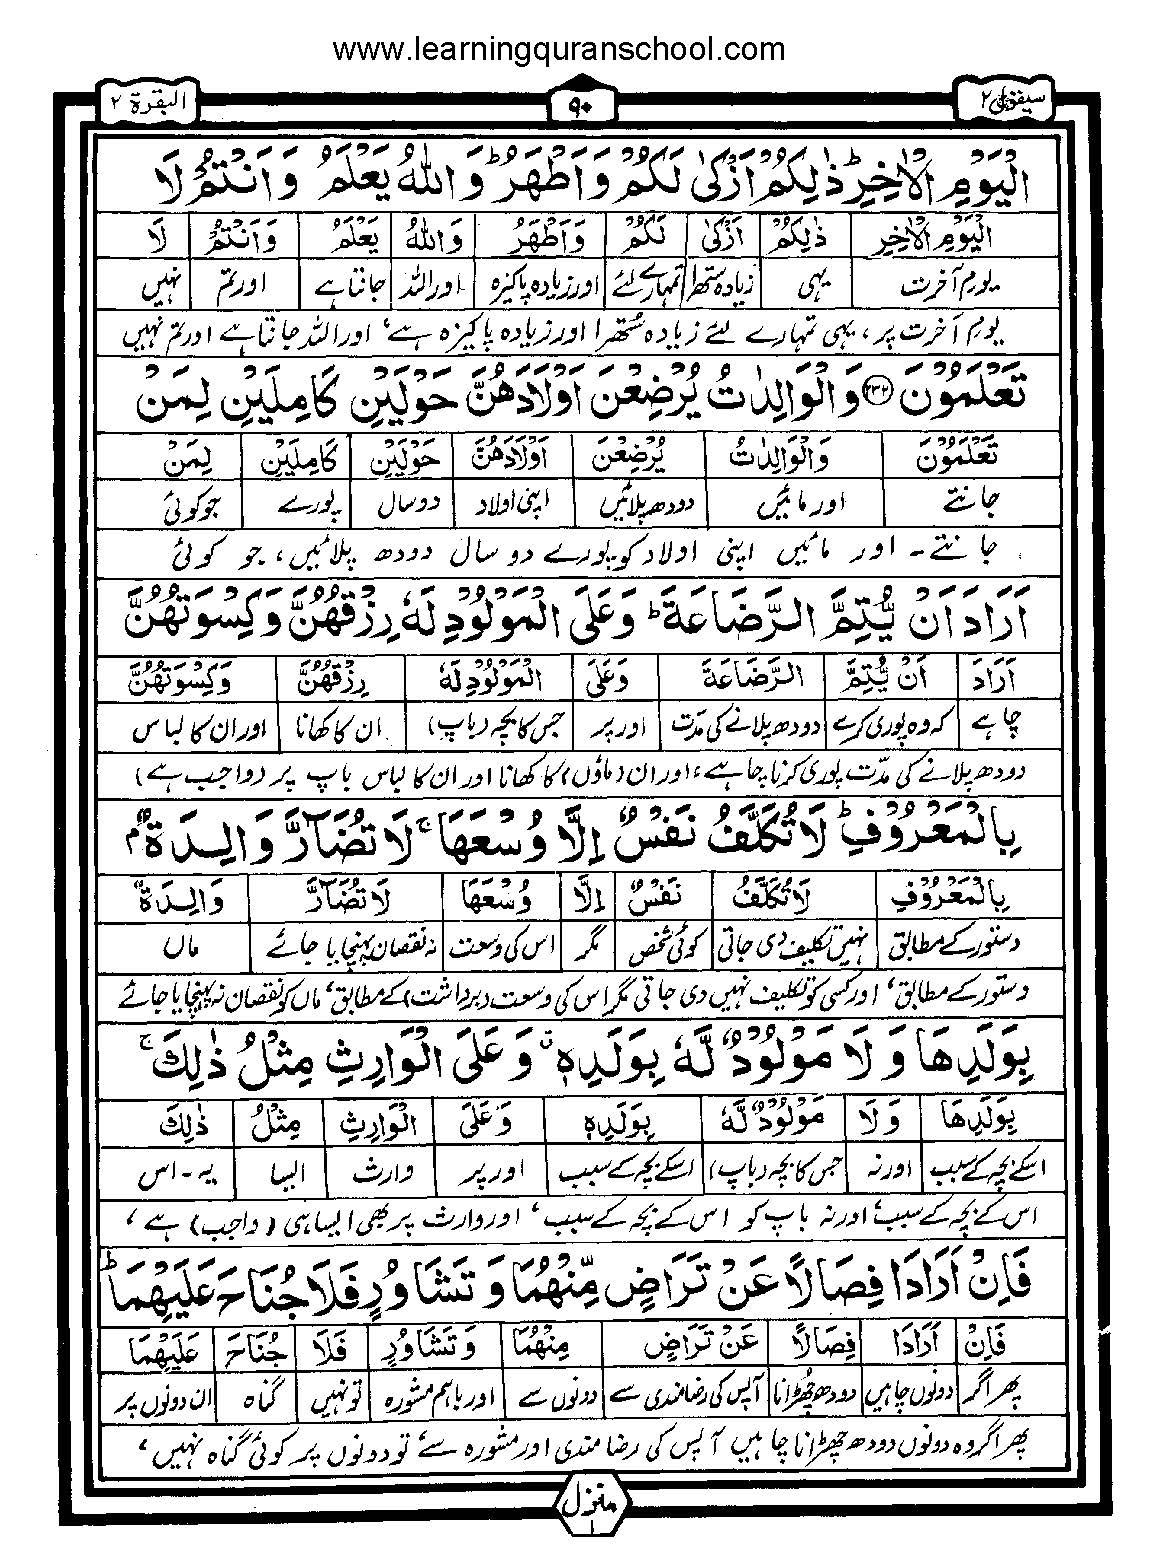 www.learningquranschool.com
سیقول ۲
۹۰
البقرة ۲
الْیَوْمِ الْاٰخِرِ ؕ ذٰلِكُمْ اَزْكٰی لَكُمْ وَاَطْهَرُ ؕ وَاللّٰهُ یَعْلَمُ وَاَنْتُمْ لَا
الْیَوْمِ الْاٰخِرِ ذٰلِكُمْ اَزْكٰی لَكُمْ وَاَطْهَرُ وَاللّٰهُ یَعْلَمُ وَاَنْتُمْ لَا
یوم آخرت یہی زیادہ ستھرا تمہارے لئے اور زیادہ پاکیزہ اور اللہ جانتا ہے اور تم نہیں
یوم آخرت پر، یہی تمہارے لئے زیادہ سُتھرا اور زیادہ پاکیزہ ہے، اور اللہ جانتا ہے اور تم نہیں
تَعْلَمُوْنَ ﴿۲۳۲﴾ وَالْوَالِدٰتُ یُرْضِعْنَ اَوْلَادَهُنَّ حَوْلَیْنِ كَامِلَیْنِ لِمَنْ
تَعْلَمُوْنَ وَالْوَالِدٰتُ یُرْضِعْنَ اَوْلَادَهُنَّ حَوْلَیْنِ كَامِلَیْنِ لِمَنْ
جانتے اور مائیں دودھ پلائیں اپنی اولاد دو سال پورے جو کوئی
جانتے۔ اور مائیں اپنی اولاد کو پورے دو سال دودھ پلائیں، جو کوئی
اَرَادَ اَنْ یُّتِمَّ الرَّضَاعَةَ ؕ وَعَلَی الْمَوْلُوْدِ لَهٗ رِزْقُهُنَّ وَكِسْوَتُهُنَّ
اَرَادَ اَنْ یُّتِمَّ الرَّضَاعَةَ وَعَلَی الْمَوْلُوْدِ لَهٗ رِزْقُهُنَّ وَكِسْوَتُهُنَّ
چاہے کہ وہ پوری کرے دودھ پلانے کی مدّت اور پر جس کا بچہ (باپ) ان کا کھانا اور ان کا لباس
دودھ پلانے کی مدّت پوری کرنا چاہے، اور ان (ماؤں) کا کھانا اور ان کا لباس باپ پر (واجب ہے)
بِالْمَعْرُوْفِ ؕ لَا تُكَلَّفُ نَفْسٌ اِلَّا وُسْعَهَا ۚ لَا تُضَآرَّ وَالِدَةٌۢ
بِالْمَعْرُوْفِ لَا تُكَلَّفُ نَفْسٌ اِلَّا وُسْعَهَا لَا تُضَآرَّ وَالِدَةٌ
دستور کے مطابق نہیں تکلیف دی جاتی کوئی شخص مگر اس کی وسعت نہ نقصان پہنچایا جائے ماں
دستور کے مطابق، اور کسی کو تکلیف نہیں دی جاتی مگر اس کی وسعت (برداشت) کے مطابق، ماں کو نقصان نہ پہنچایا جائے
بِوَلَدِهَا وَلَا مَوْلُوْدٌ لَّهٗ بِوَلَدِهٖ ۗ وَعَلَی الْوَارِثِ مِثْلُ ذٰلِكَ ۚ
بِوَلَدِهَا وَلَا مَوْلُوْدٌ لَّهٗ بِوَلَدِهٖ وَعَلَی الْوَارِثِ مِثْلُ ذٰلِكَ
اسکے بچہ کے سبب اور نہ جس کا بچہ (باپ) اسکے بچہ کے سبب اور پر وارث ایسا یہ۔اس
اس کے بچہ کے سبب، اور نہ باپ کو اس کے بچہ کے سبب، اور وارث پر بھی ایسا ہی (واجب) ہے،
فَاِنْ اَرَادَا فِصَالًا عَنْ تَرَاضٍ مِّنْهُمَا وَتَشَاوُرٍ فَلَا جُنَاحَ عَلَیْهِمَا ؕ
فَاِنْ اَرَادَا فِصَالًا عَنْ تَرَاضٍ مِنْهُمَا وَتَشَاوُرٍ فَلَا جُنَاحَ عَلَیْهِمَا
پھر اگر دونوں چاہیں دودھ چھڑانا آپس کی رضامندی سے دونوں سے اور باہم مشورہ تو نہیں گناہ ان دونوں پر
پھر اگر وہ دونوں دودھ چھڑانا چاہیں آپس کی رضامندی اور مشورہ سے، تو دونوں پر کوئی گناہ نہیں،
منزل ۱